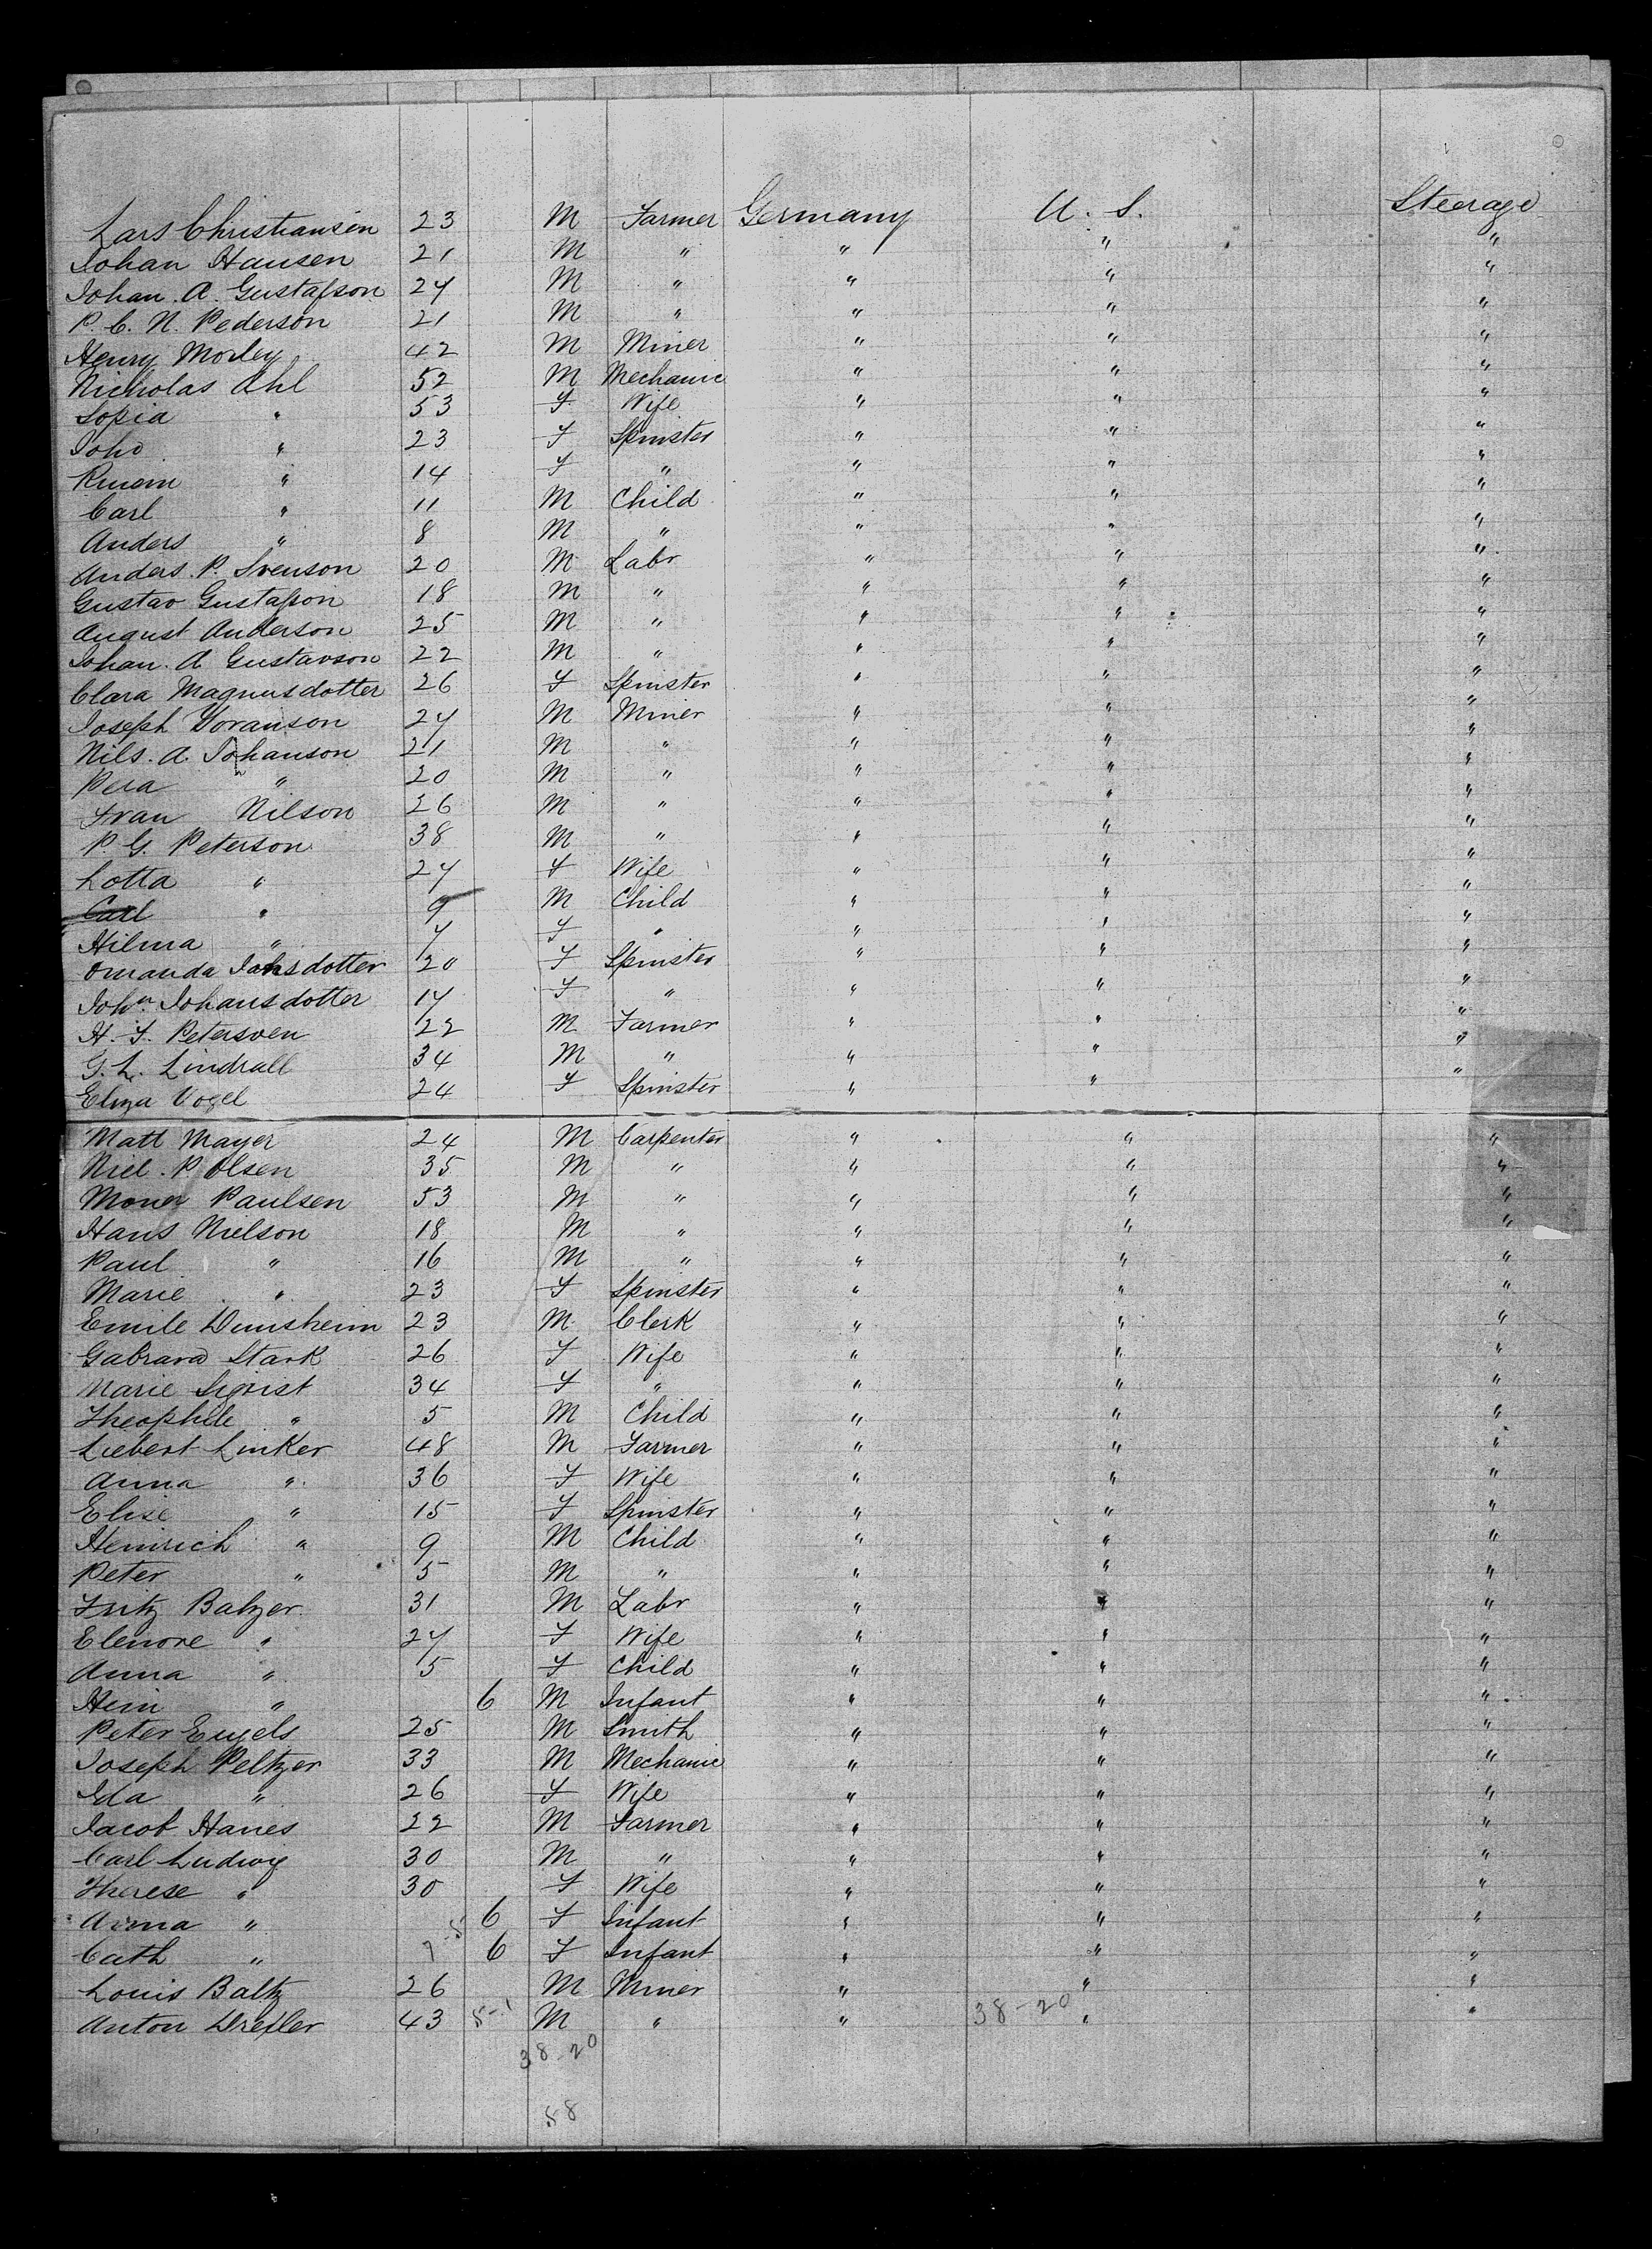 Lars Christiansen 23 M Farmer Germany U. S. Steerage
Johan Hansen 21 M " " " "
Johan. A. Gustafson 24 M " " " "
P. C. N. Pederson 21 M " " " "
Henry Morley 42 M Miner " " "
Nicholas Ahl 52 M Mechanic " " "
Sopia " 53 F Wife " " "
Joho " 23 F Spinster " " "
" 14 F " " " "
Carl " 11 M Child " " "
Anders " 8 M " " " "
Anders. P. Svenson 20 M Labr " " "
Gustav Gustafson 18 M " " " "
August Anderson 25 M " " " "
Johan. A Gustavson 22 M " " " "
Clara Magnusdotter 26 F Spinster " " "
Joseph 27 M Miner " " "
Nils. A. Johanson 21 M " " " "
Pera " 20 M " " " "
Fran Nilson 26 M " " " "
P. G. Peterson 38 M " " " "
Lotta " 27 F Wife " " "
Carl " 9 M Child " " "
Hilma " 7 F " " " "
Omanda Jahsdotter 20 F Spinster " " "
John Johansdotter 17 F " " " "
H. F. Petersven 22 M Farmer " " "
G. L. Lindrall 34 M " " " "
Eliza Vogel 24 F Spinster " " "
Matt Mayer 24 M Carpenter " " "
Niel. P Olsen 35 M " " " "
Moner Paulsen 53 M " " " "
Hans Nielson 18 M " " " "
Paul " 16 M " " " "
Marie " 23 F Spinster " " "
Emile Dunsheim 23 M Clerk " " "
Gabrard Stark 26 F Wife " " "
Marie Sigrist 34 F " " " "
Theophile " 5 M Child " " "
Liebert Linker 48 M Farmer " " "
Anna " 36 F Wife " " "
Elise " 15 F Spinster " " "
Heinrich " 9 M Child " " "
Peter " 5 M " " " "
Fritz Balzer 31 M Labr " " "
Elenore " 27 F Wife " " "
Anna " 5 F Child " " "
Hein " 6 M Infant " " "
Peter Engels 25 M Smith " " "
Joseph Peltzer 33 M Mechanic " " "
Ida " 26 F Wife " " "
Jacob Hanes 22 M Farmer " " "
Carl Ludwig 30 M " " " "
Therese " 30 F Wife " " "
Anna " 6 F Infant " " "
Cath " 6 F Infant " " "
Louis Baltz 26 M Miner " " "
Anton Drefler 43 5-1 M " " 38-20 " "
38-20
58